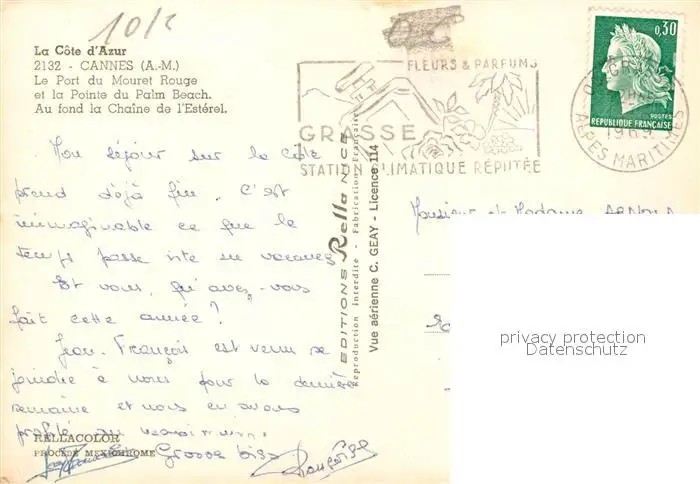 10/2
La Côte d'Azur
2132 - CANNES (A.-M.)
Le Port du Mouret Rouge
et la Pointe du Palm Beach.
Au fond la Chaîne de l'Estérel.
FLEURS & PARFUMS
GRASSE
STATION CLIMATIQUE RÉPUTÉE
0,30
POSTES
REPUBLIQUE FRANÇAISE
GRASSE
1969
ALPES MARITIMES
Mon séjour sur la côte
prend déjà fin. C'est
inimaginable ce que le
temps passe vite en vacances
Et vous, qu'avez-vous
fait cette année?
Jean-François est venu se
joindre à nous pour la dernière
semaine et nous en avons
profité au
Grosse bise
Françoise
EDITIONS Rella NICE
Reproduction interdite - Fabrication Française
Vue aérienne C. GEAY - Licence 114
Monsieur et Madame
RELLACOLOR
PROCÉDÉ MEXICHROME
privacy protection
Datenschutz